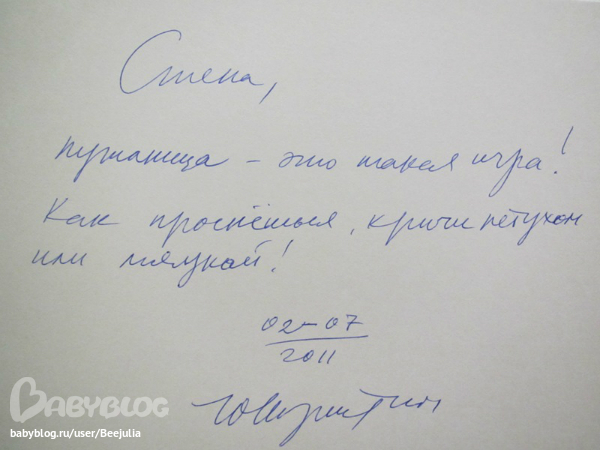 Стена,
путаница – это такая игра!
Как проспёшься, кричи петухом
или мяукай!
02–07
2011
BABYBLOG
babyblog.ru/user/Beejulia